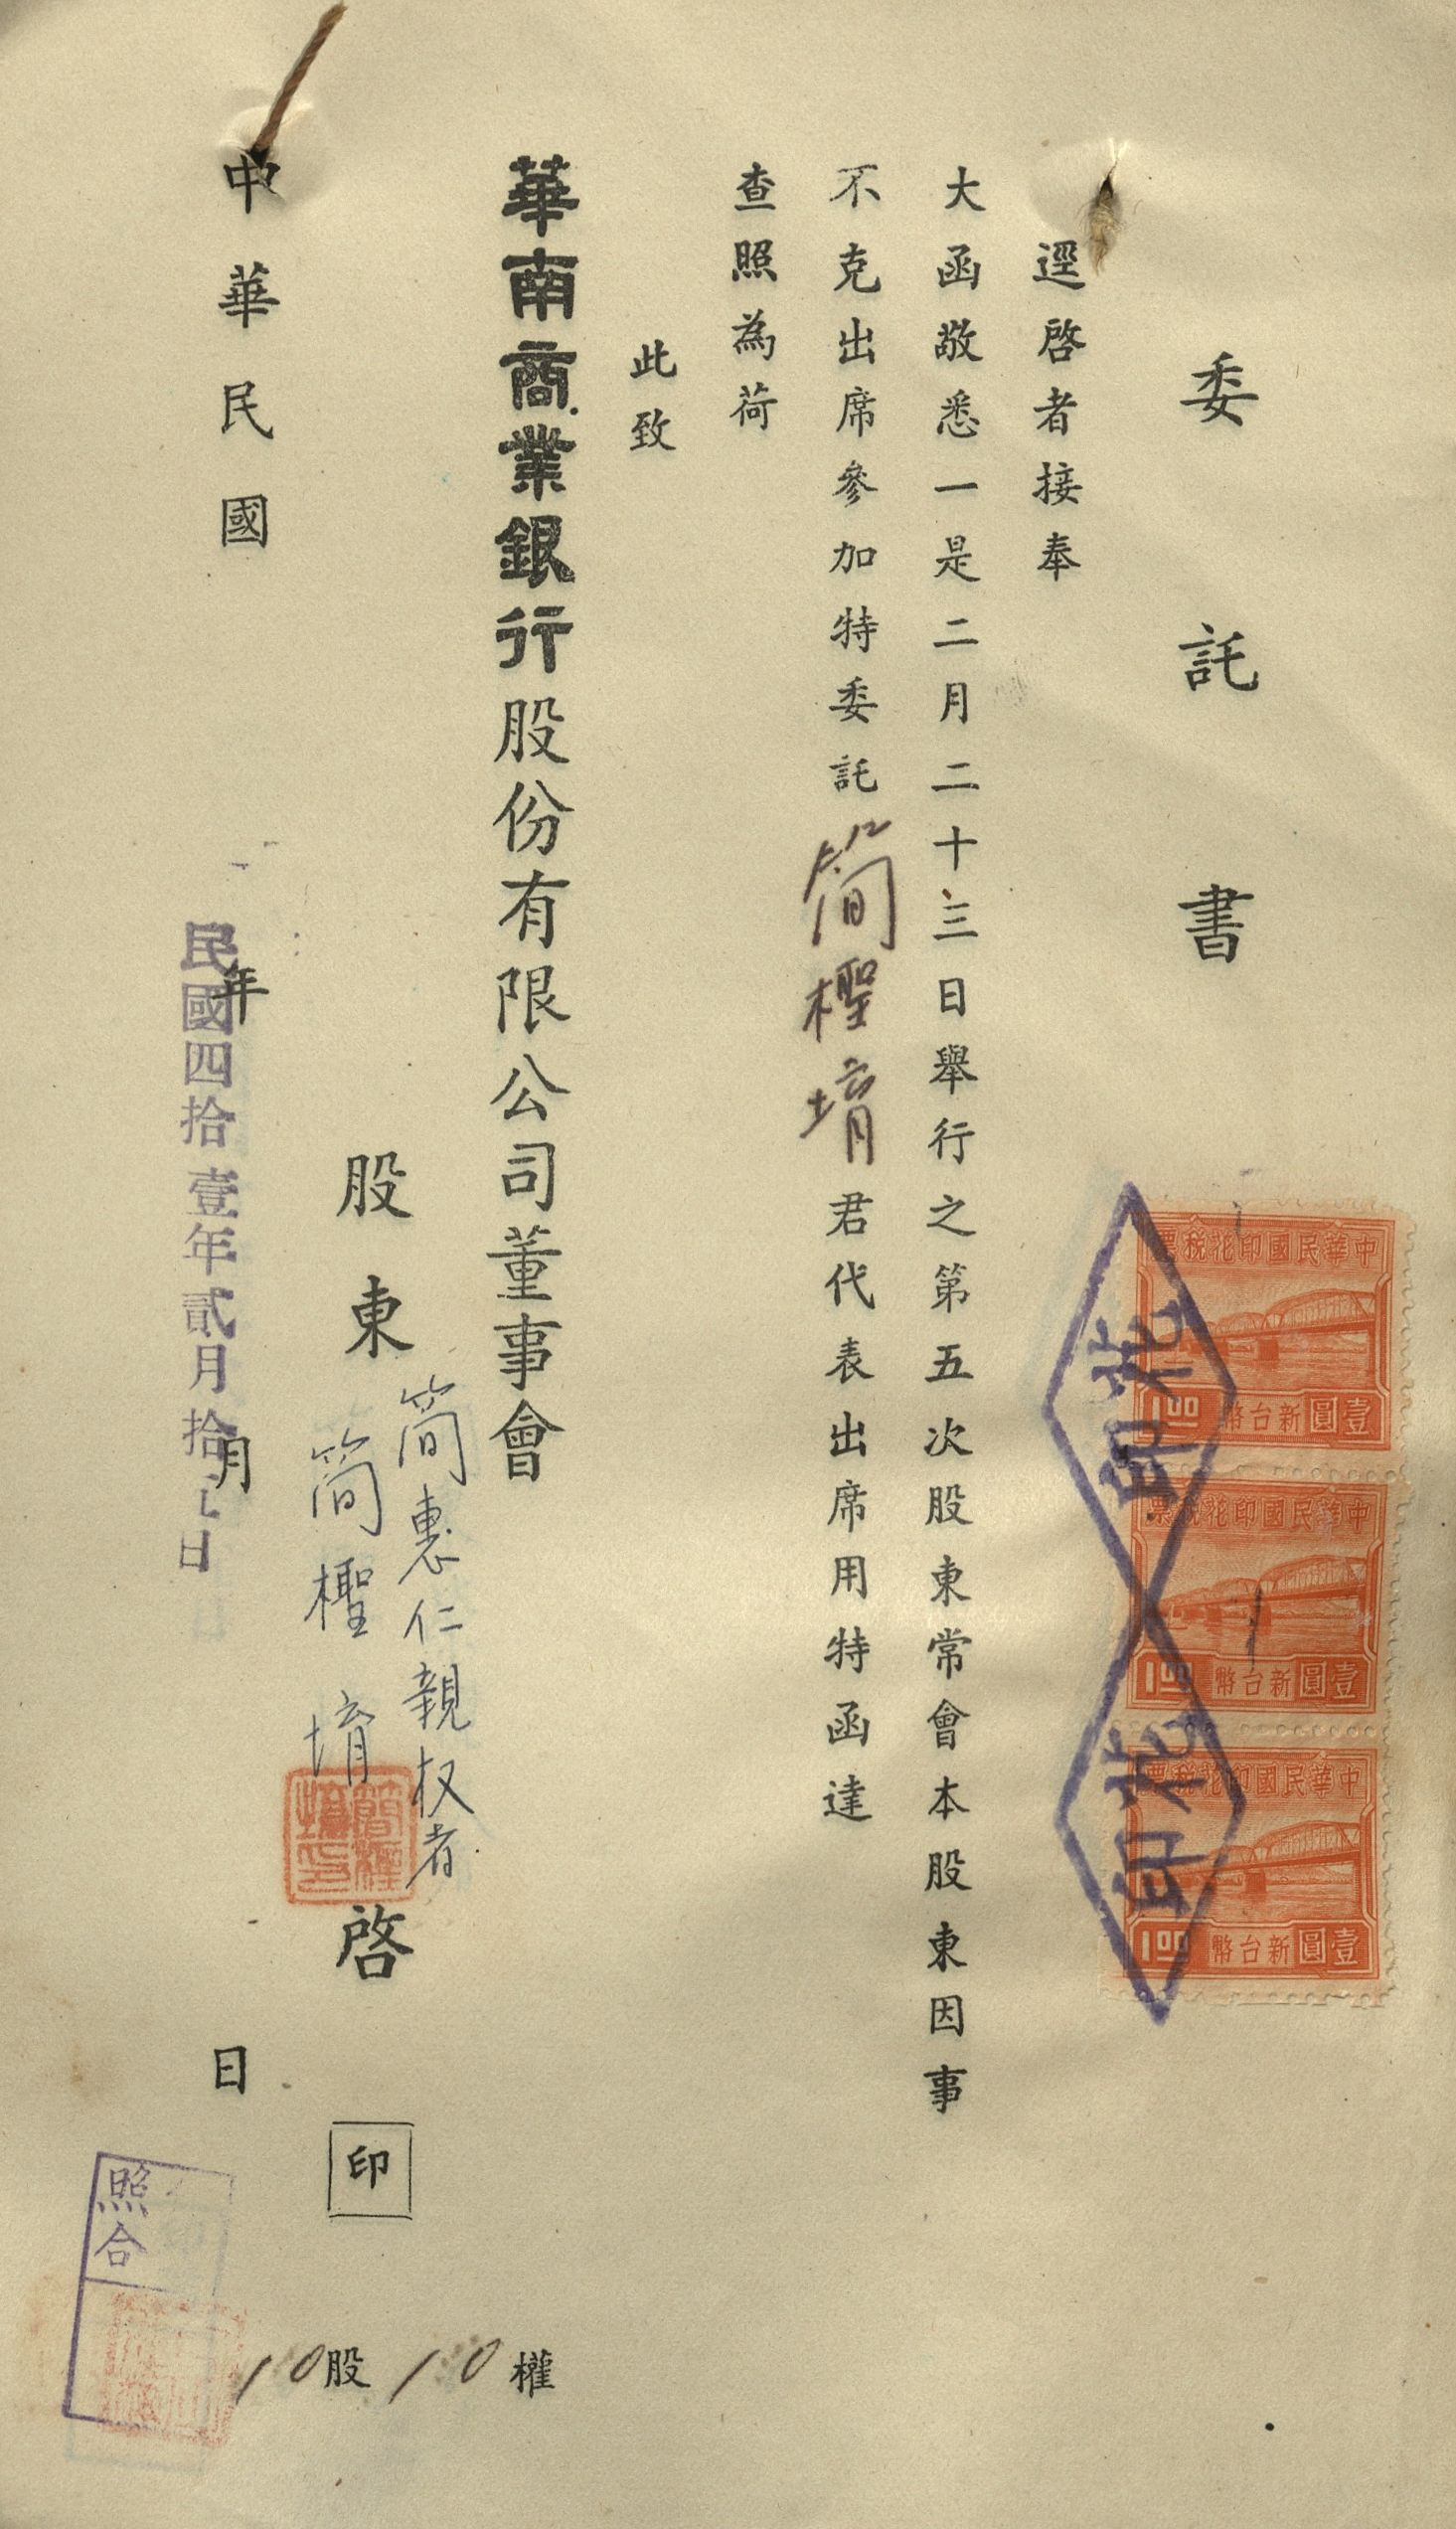 委託書
逕啓者接奉
大函敬悉一是二月二十三日舉行之第五次股東常會本股東因事
不克出席參加特委託簡檉堉君代表出席用特函達
查照為荷
此致
華南商業銀行股份有限公司董事會
股東
簡惠仁親权者
簡檉堉
啓
印
10股10權
中華民國 年 月 日
民國四拾壹年貳月拾 日
照合
中華民國印花稅票
壹圓新台幣
1.00
中華民國印花稅票
壹圓新台幣
1.00
中華民國印花稅票
壹圓新台幣
1.00
印花
印花
簡檉堉印